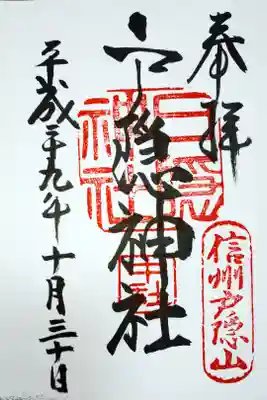 奉拝
信州戸隠山
戸隠神社
中社
平成二十九年十月三十日